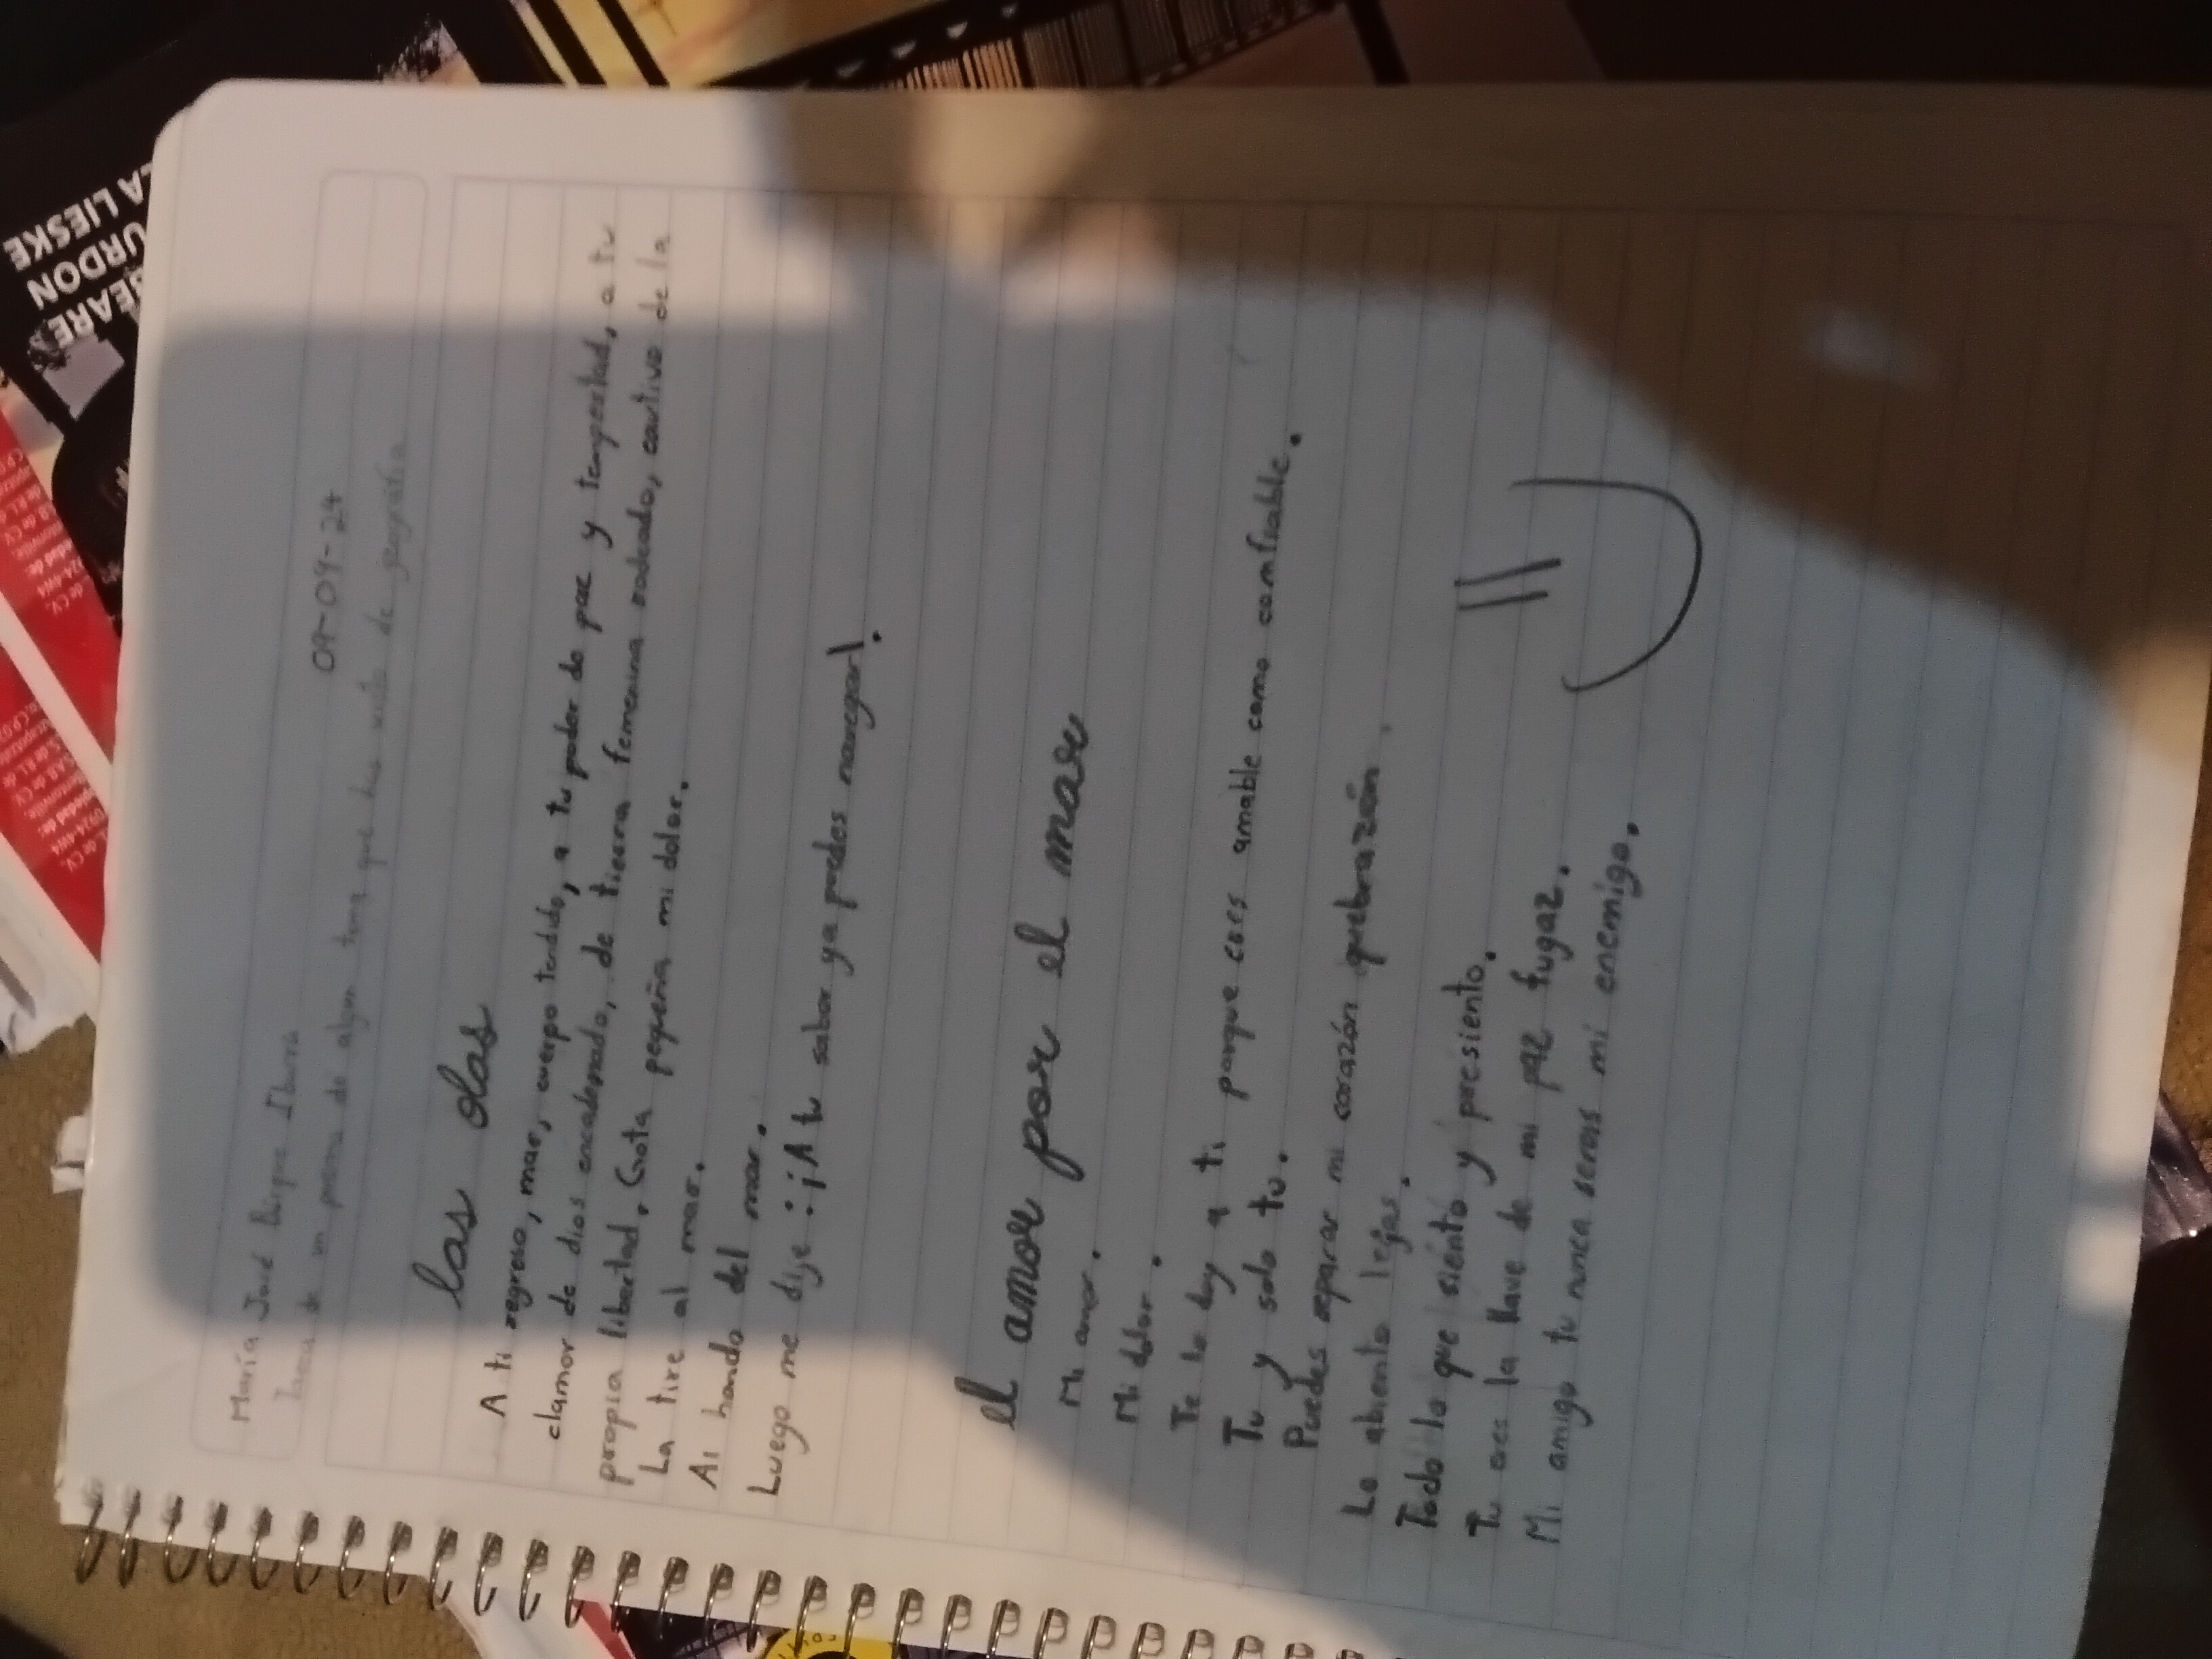 María José Ibarra
09-09-24
de un poema de algun tema que has visto de geografía
las olas
A ti regreso, mar, cuerpo tendido, a tu poder de paz y tempestad, a tu
clamor de dios encadenado, de tierra femenina rodeado, cautivo de la
propia libertad. Gota pequeña mi dolor.
La tire al mar.
Al hondo del mar.
Luego me dije: ¡A tu sabor ya puedes navegar!.
el amor por el mar
Mi amor.
Mi dolor.
Te lo doy a ti porque eres amable como confiable.
Tu y solo tu.
Puedes reparar mi corazón quebrazón.
Lo abiento lejas.
Todo lo que siento y presiento.
Tu eres la llave de mi paz fugaz.
Mi amigo tu nunca seras mi enemigo.
LA LIESKE
URDON
EARE